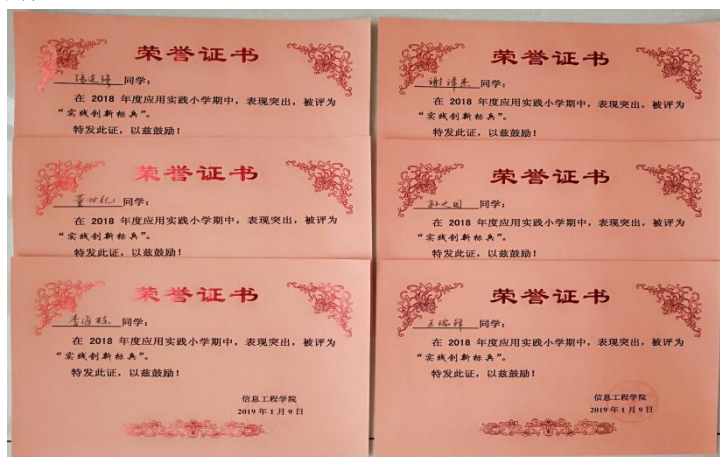 荣誉证书
同学：
在 2018 年度应用实践小学期中，表现突出，被评为
“实践创新标兵”。
特发此证，以兹鼓励！
荣誉证书
谢泽杰 同学：
在 2018 年度应用实践小学期中，表现突出，被评为
“实践创新标兵”。
特发此证，以兹鼓励！
荣誉证书
董世礼 同学：
在 2018 年度应用实践小学期中，表现突出，被评为
“实践创新标兵”。
特发此证，以兹鼓励！
荣誉证书
同学：
在 2018 年度应用实践小学期中，表现突出，被评为
“实践创新标兵”。
特发此证，以兹鼓励！
荣誉证书
同学：
在 2018 年度应用实践小学期中，表现突出，被评为
“实践创新标兵”。
特发此证，以兹鼓励！
信息工程学院
2019 年 1 月 9 日
荣誉证书
同学：
在 2018 年度应用实践小学期中，表现突出，被评为
“实践创新标兵”。
特发此证，以兹鼓励！
信息工程学院
2019 年 1 月 9 日